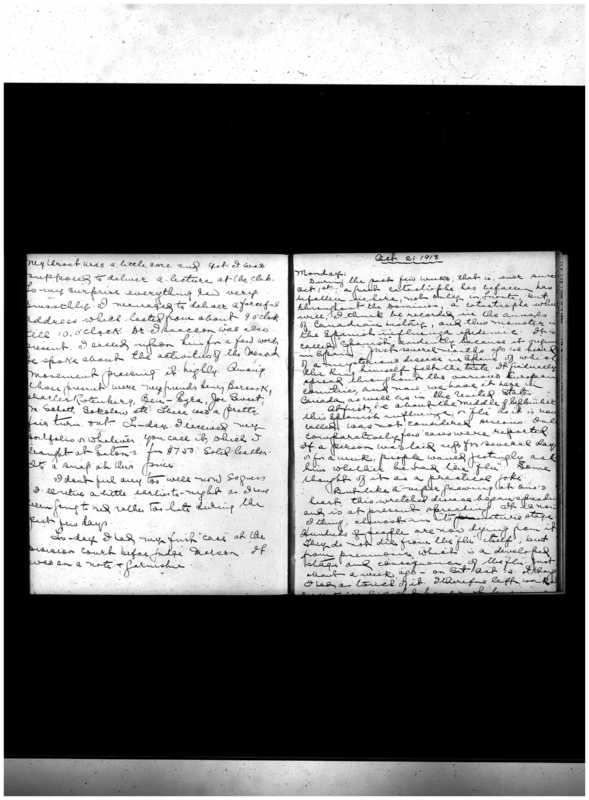 my throat was a little sore and yet I was
supposed to deliver a lecture at the club.
To my surprise everything ran very
smoothly. I managed to deliver a forceful
address which lasted from about 9 o'clock
till 10. o'clock Dr I Isaacson was also
present. I called upon him for a few words
he spoke about the activities of the
movement praising it highly. Among
those present were my friends Henry
Charles Rotenberg, Ben-Ezra, Joe
M Gelbett, Sokolow etc. There was a pretty
fair turn out Sunday I received my
portfolio or whatever you call it, which I
bought at Eaton's for $7.50. Solid leather.
It's a snap at this price
I don't feel any too well now So guess
I'll retire a little earlier to-night as I have
been going to bed rather too late during the
past few days.
To-day I had my first case at the
division court before judge Morson It
was on a note & garnishee
Oct 21 1918
Monday:
During the past few weeks, that is, ever since
Oct 1st. a great catastrophe has befallen has
befallen us here, not only in Toronto, but
throughout the Dominion, a catastrophe which
will, I think be recorded in the annals
of Canadian history, and this monster is
the Spanish influenza epidemic. It is
called Spanish, evidently because it originated
in Spain. Just several months ago we heard
of a mysterious disease in Spain of which
the king himself felt the taste. It gradually
spread throughout the various European
countries, and now we have it here in
Canada, as well as in the United States
At first, i.e. about the middle of September
this Spanish influenza, or flu as it is now
called was not considered serious. Only
comparatively few cases were reported
If a person was laid up for several days
or for a week, people would jestingly ask
him whether he had the "flu". Some
thought of it as a practical joke
But like a viper gnawing at one's
heart this wretched disease began spreading
and is at present spreading. It is now
a thing, almost in its stage
Hundreds of people are now dying from it
They do not die from the flu itself, but
from pneumonia, which is a developed
stage and consequence of the flu. Just
about a week ago - on Oct
I had a touch of it. I therefore left